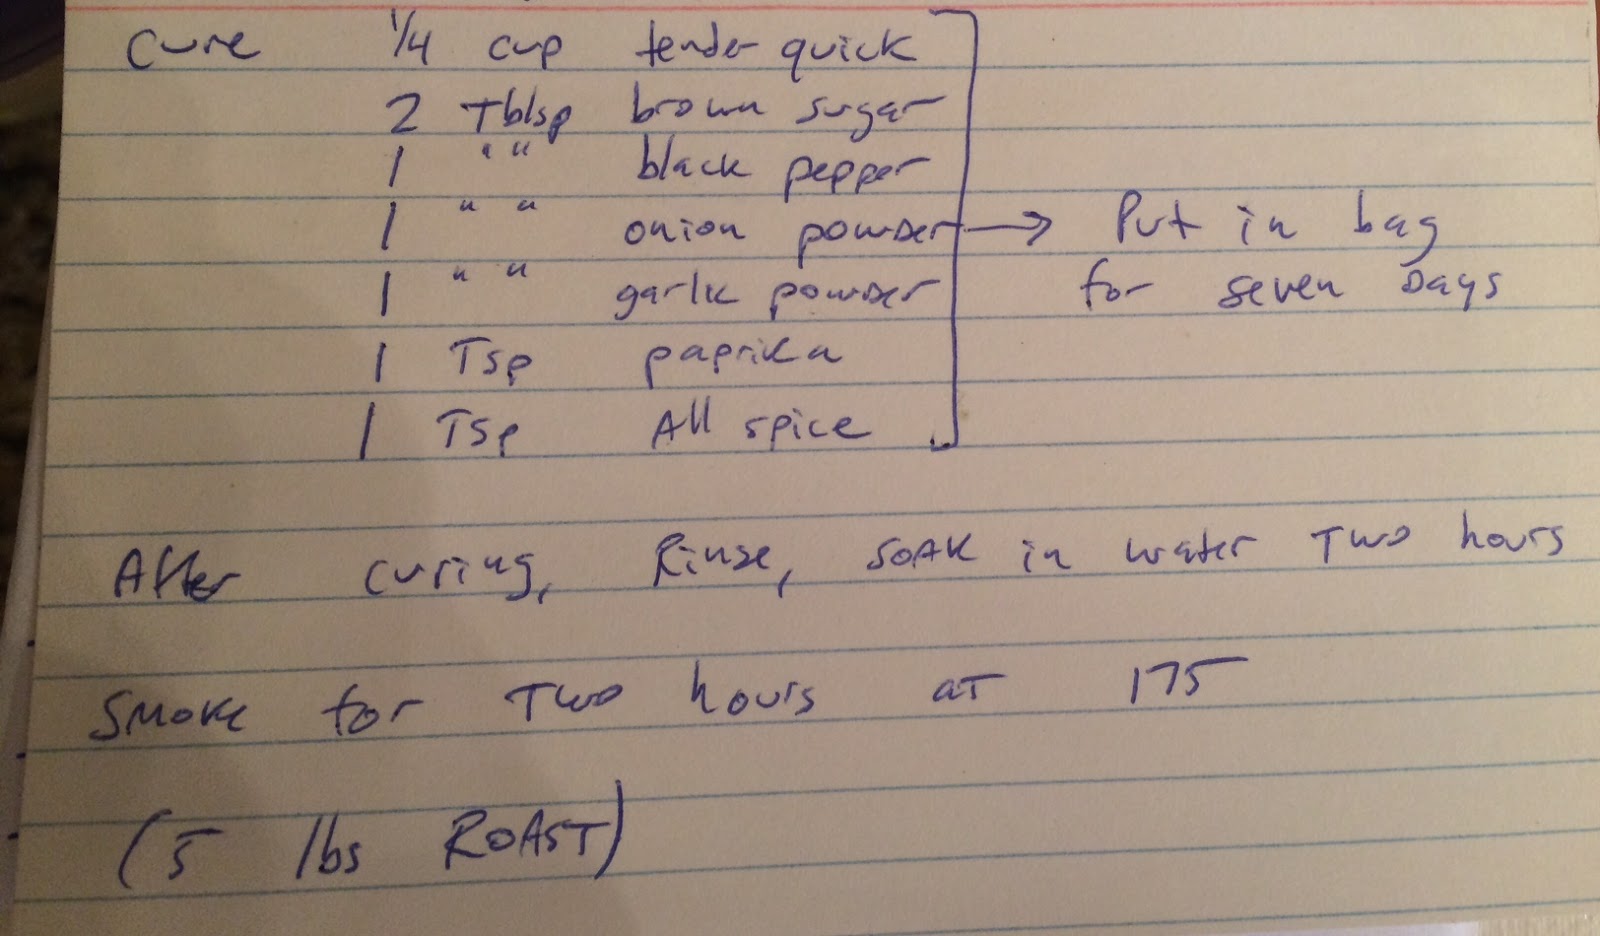 Cure 1/4 cup tender quick
2 Tblsp brown sugar
1 " " black pepper
1 " " onion powder → Put in bag
1 " " garlic powder for seven Days
1 Tsp paprika
1 Tsp All spice
After curing, Rinse, SOAK in water Two hours
Smoke for Two hours at 175
(5 lbs ROAST)